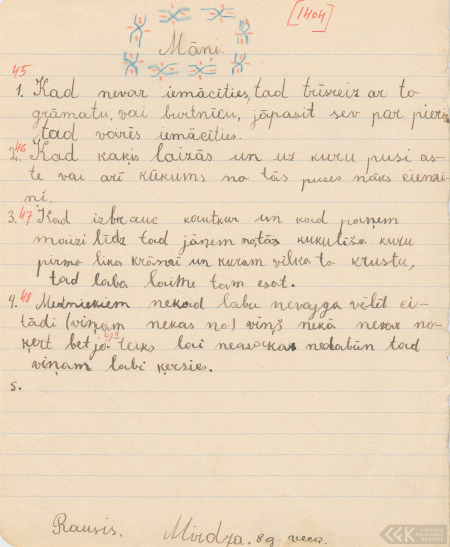 [1404]
Māni.
45
1. Kad nevar iemācīties, tad trīsreiz ar to
grāmatu, vai burtnīcu, jāpasit sev par pieri
tad varēs iemācīties.
2. 46 Kad kaķis laizās un uz kuru pusi as-
te vai arī kūkums no tās puses nāks ciemi-
ņi.
3. 47 Kad izbrauc kautkur un kad paņem
maizi līdz tad jāņem no tās kukulīša kuru
pirmo lika krāsnī un kuram vilka to krustu,
tad laba laime tam esot.
4. 48 Medniekiem nekad labu nevajga vēlēt ei-
tādi (viņam nekas no) viņš nekā nevar no-
ķert bet ja teiks lai neasaskas nedabūn tad
viņam labi ķersies.
5.
Rausis. Mirdza. 8 g. veca.
LATVIEŠU
FOLKLORAS
KRĀTUVE